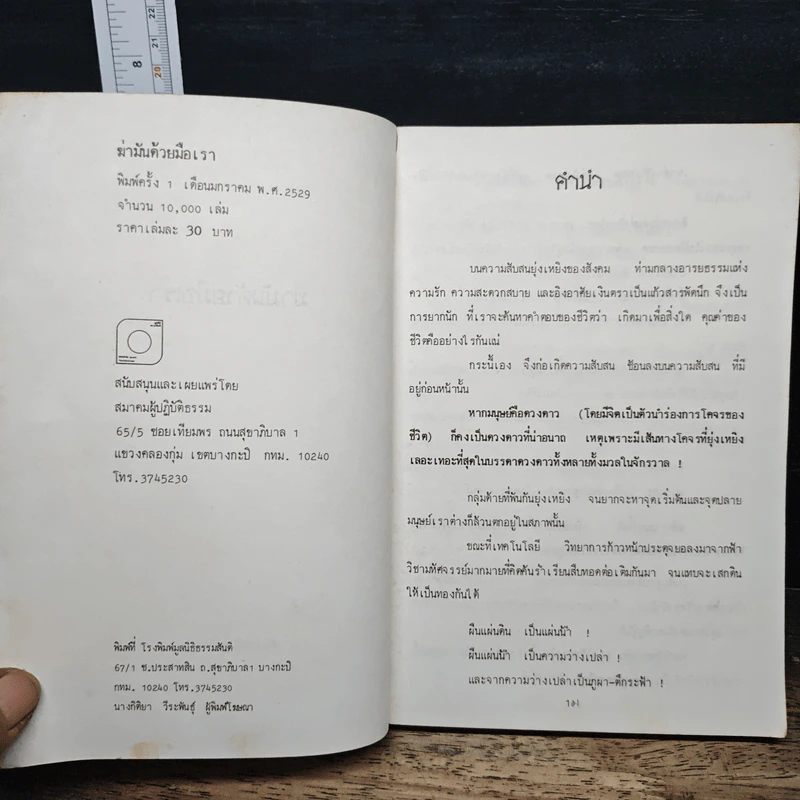 8
22
21
20
ฆ่ามันด้วยมือเรา
พิมพ์ครั้ง 1 เดือนมกราคม พ.ศ.2529
จำนวน 10,000 เล่ม
ราคาเล่มละ 30 บาท
สนับสนุนและเผยแพร่โดย
สมาคมผู้ปฏิบัติธรรม
65/5 ซอยเทียมพร ถนนสุขาภิบาล 1
แขวงคลองกุ่ม เขตบางกะปิ กทม. 10240
โทร.3745230
พิมพ์ที่ โรงพิมพ์มูลนิธิธรรมสันติ
67/1 ซ.ประสาทสิน ถ.สุขาภิบาล1 บางกะปิ
กทม. 10240 โทร.3745230
นางกิติยา วีระพันธุ์ ผู้พิมพ์โฆษณา
คำนำ
บนความสับสนยุ่งเหยิงของสังคม ท่ามกลางอารยธรรมแห่ง
ความรัก ความสะดวกสบาย และอิงอาศัยเงินตราเป็นแก้วสารพัดนึก จึงเป็น
การยากนัก ที่เราจะค้นหาคำตอบของชีวิตว่า เกิดมาเพื่อสิ่งใด คุณค่าของ
ชีวิตคืออย่างไรกันแน่
กระนี้เอง จึงก่อเกิดความสับสน ซ้อนลงบนความสับสน ที่มี
อยู่ก่อนหน้านั้น
หากมนุษย์คือดวงดาว (โดยมีจิตเป็นตัวนำร่องการโคจรของ
ชีวิต) ก็คงเป็นดวงดาวที่น่าอนาถ เหตุเพราะมีเส้นทางโคจรที่ยุ่งเหยิง
เลอะเทอะที่สุดในบรรดาดวงดาวทั้งหลายทั้งมวลในจักรวาล !
กลุ่มด้ายที่พันกันยุ่งเหยิง จนยากจะหาจุดเริ่มต้นและจุดปลาย
มนุษย์เราต่างก็ล้วนตกอยู่ในสภาพนั้น
ขณะที่เทคโนโลยี วิทยาการก้าวหน้าประดุจยอลงมาจากฟ้า
วิชามหัศจรรย์มากมายที่คิดค้นร่ำเรียนสืบทอดต่อเติมกันมา จนแทบจะเสกดิน
ให้เป็นทองกันได้
ผืนแผ่นดิน เป็นแผ่นน้ำ !
ผืนแผ่นน้ำ เป็นความว่างเปล่า !
และจากความว่างเปล่าเป็นภูผา-ตึกระฟ้า !